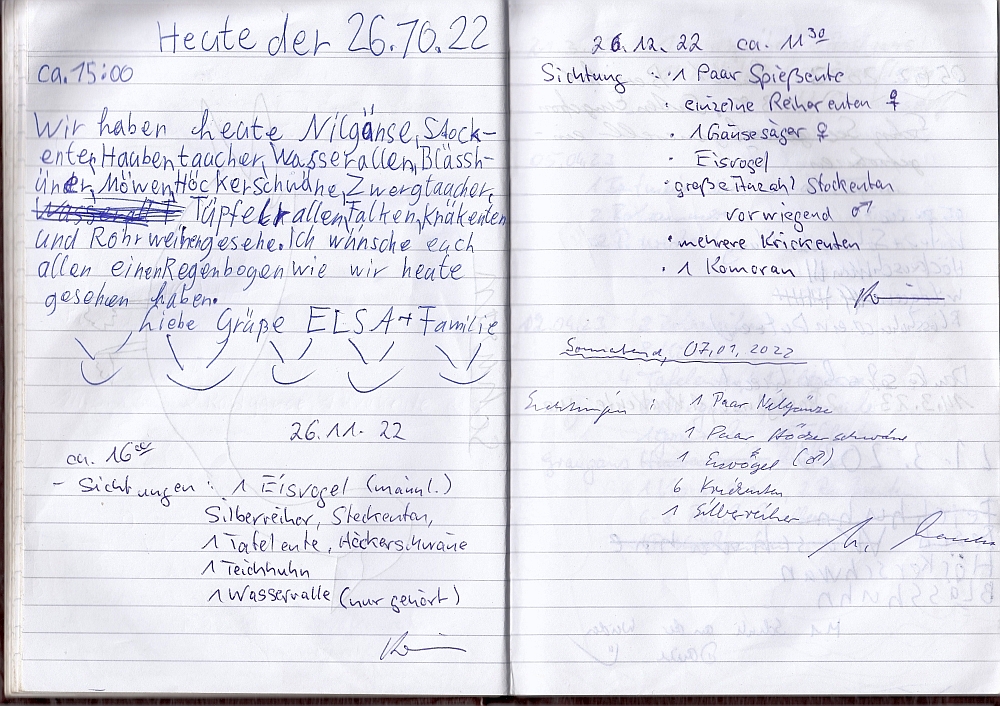 Heute der 26.10.22
ca. 15:00
Wir haben heute Nilgänse, Stock-
enten, Haubentaucher, Wasserallen, Blässh-
üner, Möwen, Höckerschwäne, Zwergtaucher,
Tüpfelrallen, Falken, Knäkenten
und Rohrweihen gesehe. Ich wünsche euch
allen einen Regenbogen wie wir heute
gesehen haben.
Liebe Grüße ELSA + Familie
26.11.22
ca. 16°°
- Sichtungen: 1 Eisvogel (männl.)
Silberreiher, Stockenten,
1 Tafelente, Höckerschwäne
1 Teichhuhn
1 Wasserralle (nur gehört)
26.12.22 ca. 11³⁰
Sichtung: · 1 Paar Spießente
· einzelne Reiherenten ♀
· 1 Gänsesäger ♀
· Eisvogel
· große Anzahl Stockenten
vorwiegend ♂
· mehrere Krickenten
· 1 Komoran
Sonnabend, 07.01.2022
Sichtungen: 1 Paar Nilgänse
1 Paar Höckerschwäne
1 Eisvogel (♂)
6 Krickenten
1 Silberreiher